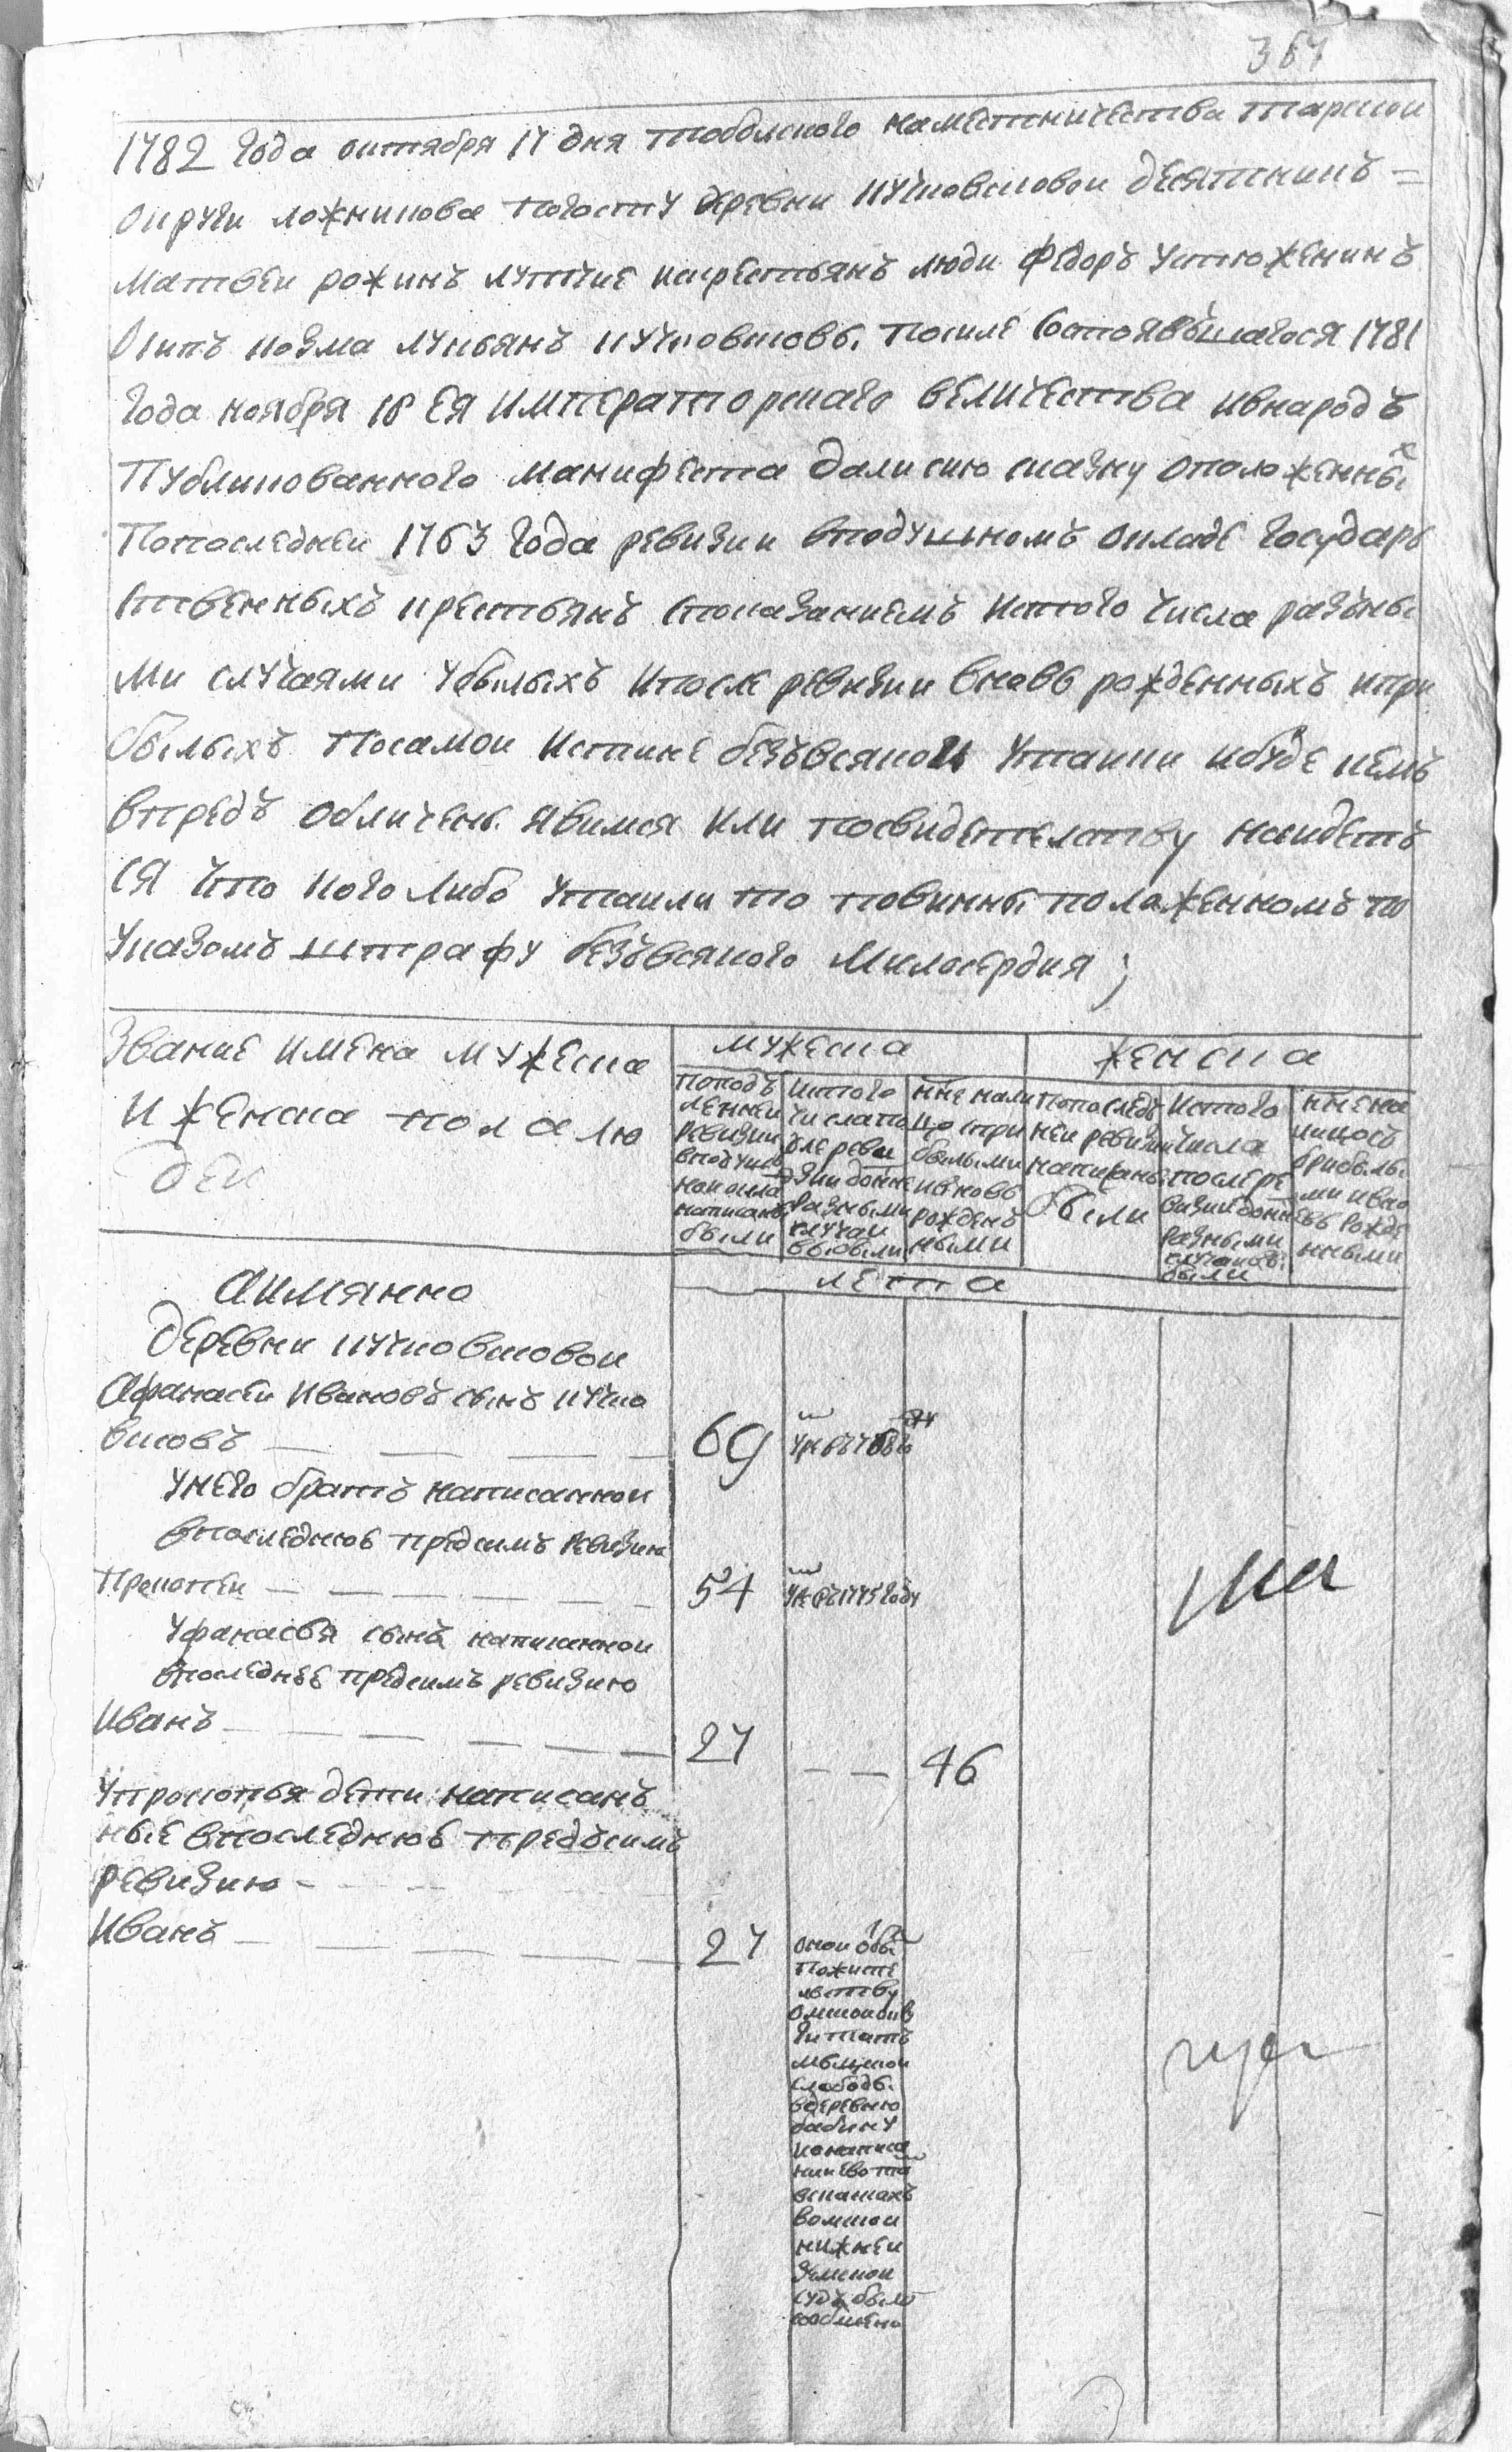 367
1782 года октября 17 дня тоболского наместничества тарской
округи ложникова погосту деревни кучковсковой десятникъ =
матвеи рожинъ лутчие искрестьянъ люди федоръ устюженинъ
осипъ козма лукьянъ кучковсковы. посиле состоявъшагося 1781
года ноября 18 ея императорскаго величества ивнародъ
публикованного манифеста дали сию скаску оположенны х
попоследнеи 1763 года ревизии вподушьномъ окладе государь
ственныхъ крестьянъ спосказаниемъ истого числа разъны
ми случаями убылыхъ ипосле ревизии вновь рожденныхъ ипри
былыхъ посамои истине безъвсякои утаики ибуде кемъ
впредъ обличены явимся или посвидетелству наидетъ
ся что кого либо утаили то повинны положенномъ по
указомъ штрафу безъвсякого милосердия ;
звание имена мужеска
и женска пола лю
деи
мужеска
попосъ
леднеи
ревизии
вподуш
ном окла
написаны
были
истого
числа по
сле реви
зии доные
разными
случаи
выбыли
ныне нали
цо при
былыми
ивновь
рожденъ
ными
женска
попоследъ
неи ревизии
написаны
были
истого
числа
послере
визии доны
разными
случаи вы
были
ныне на
лицось
прибылы
ми ивно
вь рожде
нными
лета
аимянно
деревни кучковсковои
афанасеи ивановъ сынъ кучко
висковъ
69
умръ
унего братъ написаннои
впоследнюю предсимъ ревизию
прокопеи
54
умръ 1775 году
уфанасья сынъ написаннои
впоследнее предсимъ ревизию
иванъ
27
46
упрокопья дети написанъ
ные впоследнюю предъсимъ
ревизию
иванъ
27
онои
пожите
лству
омскои
мыцкои
слободы
вдеревню
бабину
инаписа
вскасках
вомскои
нижнеи
земскои
судъ было
сообщено